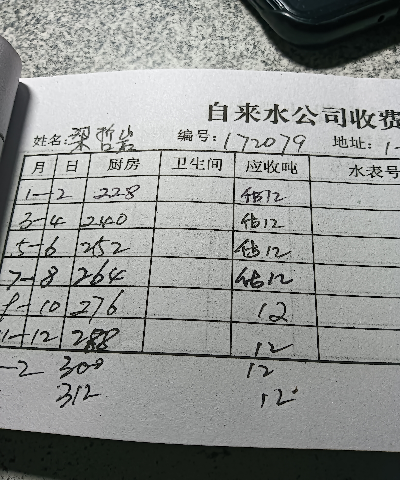 自来水公司收费
姓名:梁哲岩 编号:172079 地址:1-
月 日 厨房 卫生间 应收吨 水表号
1-2 228 估12
3-4 240 估12
5-6 252 估12
7-8 264 估12
9-10 276 12
11-12 288 12
-2 300 12
312 12